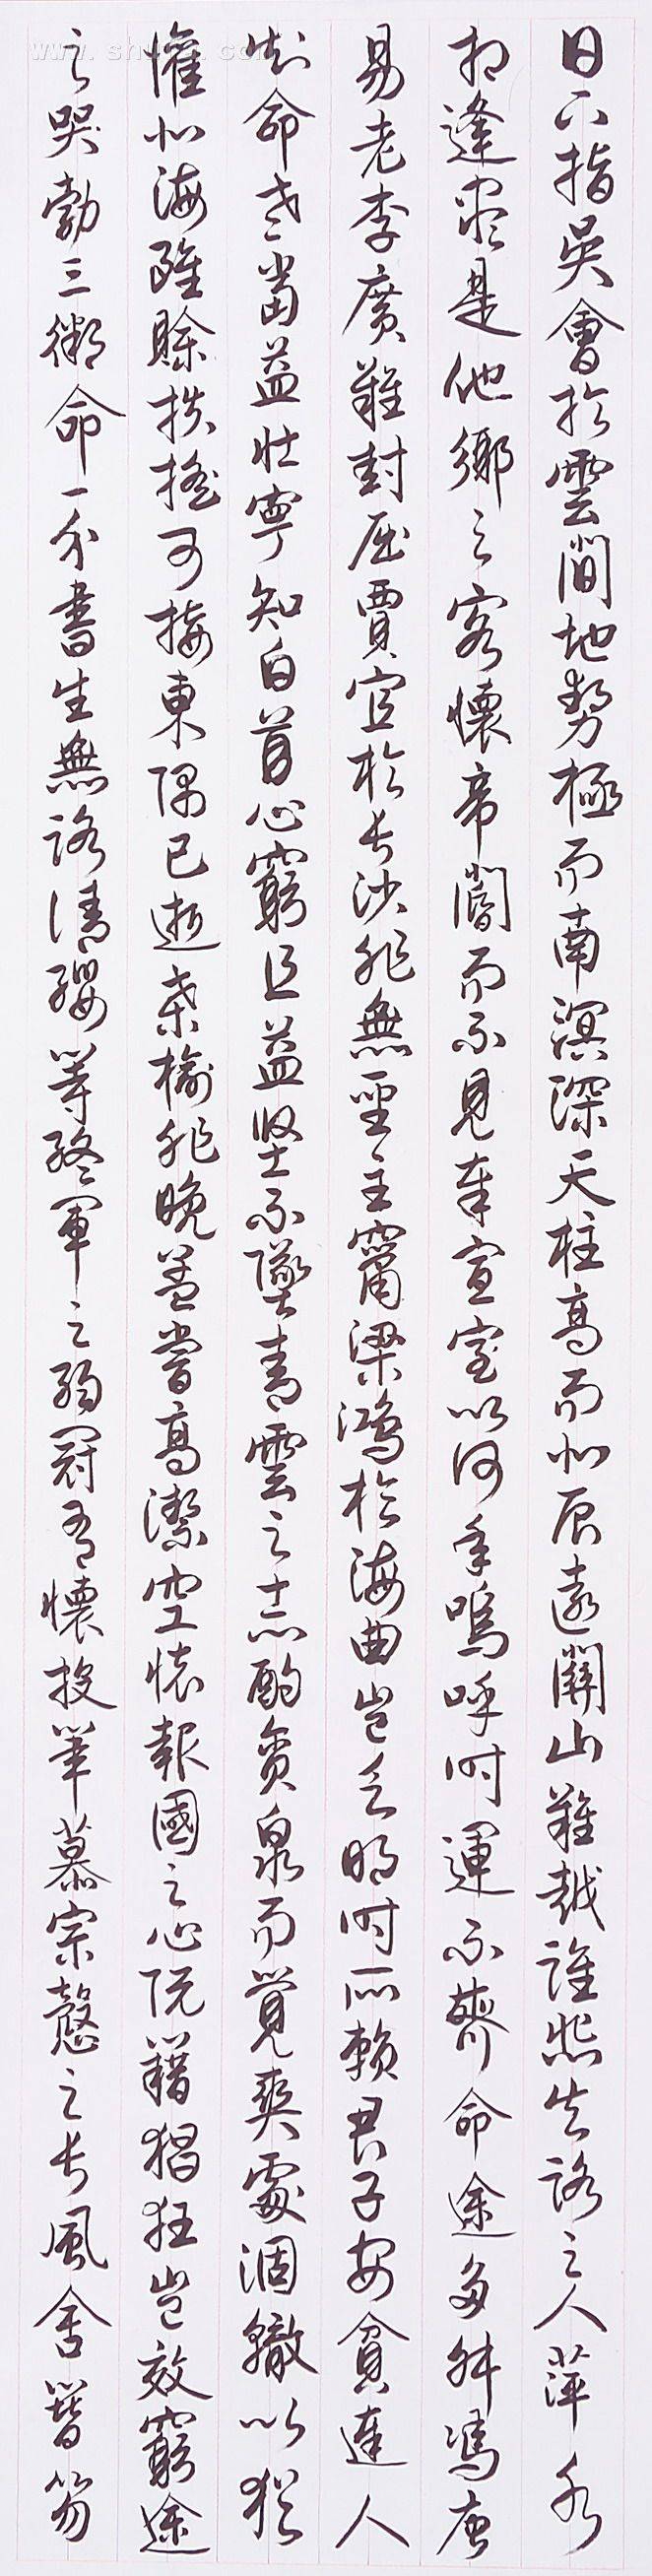 日下指吳會於雲間地勢極而南溟深天柱高而北辰遠關山難越誰悲失路之人萍水
相逢盡是他鄉之客懷帝閽而不見奉宣室以何年嗚呼時運不齊命途多舛馮唐
易老李廣難封屈賈宜於長沙非無聖主竄梁鴻於海曲豈乏明時所賴君子安貧達人
知命老當益壯寧知白首心窮且益堅不墜青雲之志酌貪泉而覺爽處涸轍以猶
懽北海雖賒扶搖可接東隅已逝桑榆非晚孟嘗高潔空懷報國之心阮籍猖狂豈效窮途
之哭勃三尺微命一介書生無路請纓等終軍之弱冠有懷投筆慕宗愨之長風舍簪笏